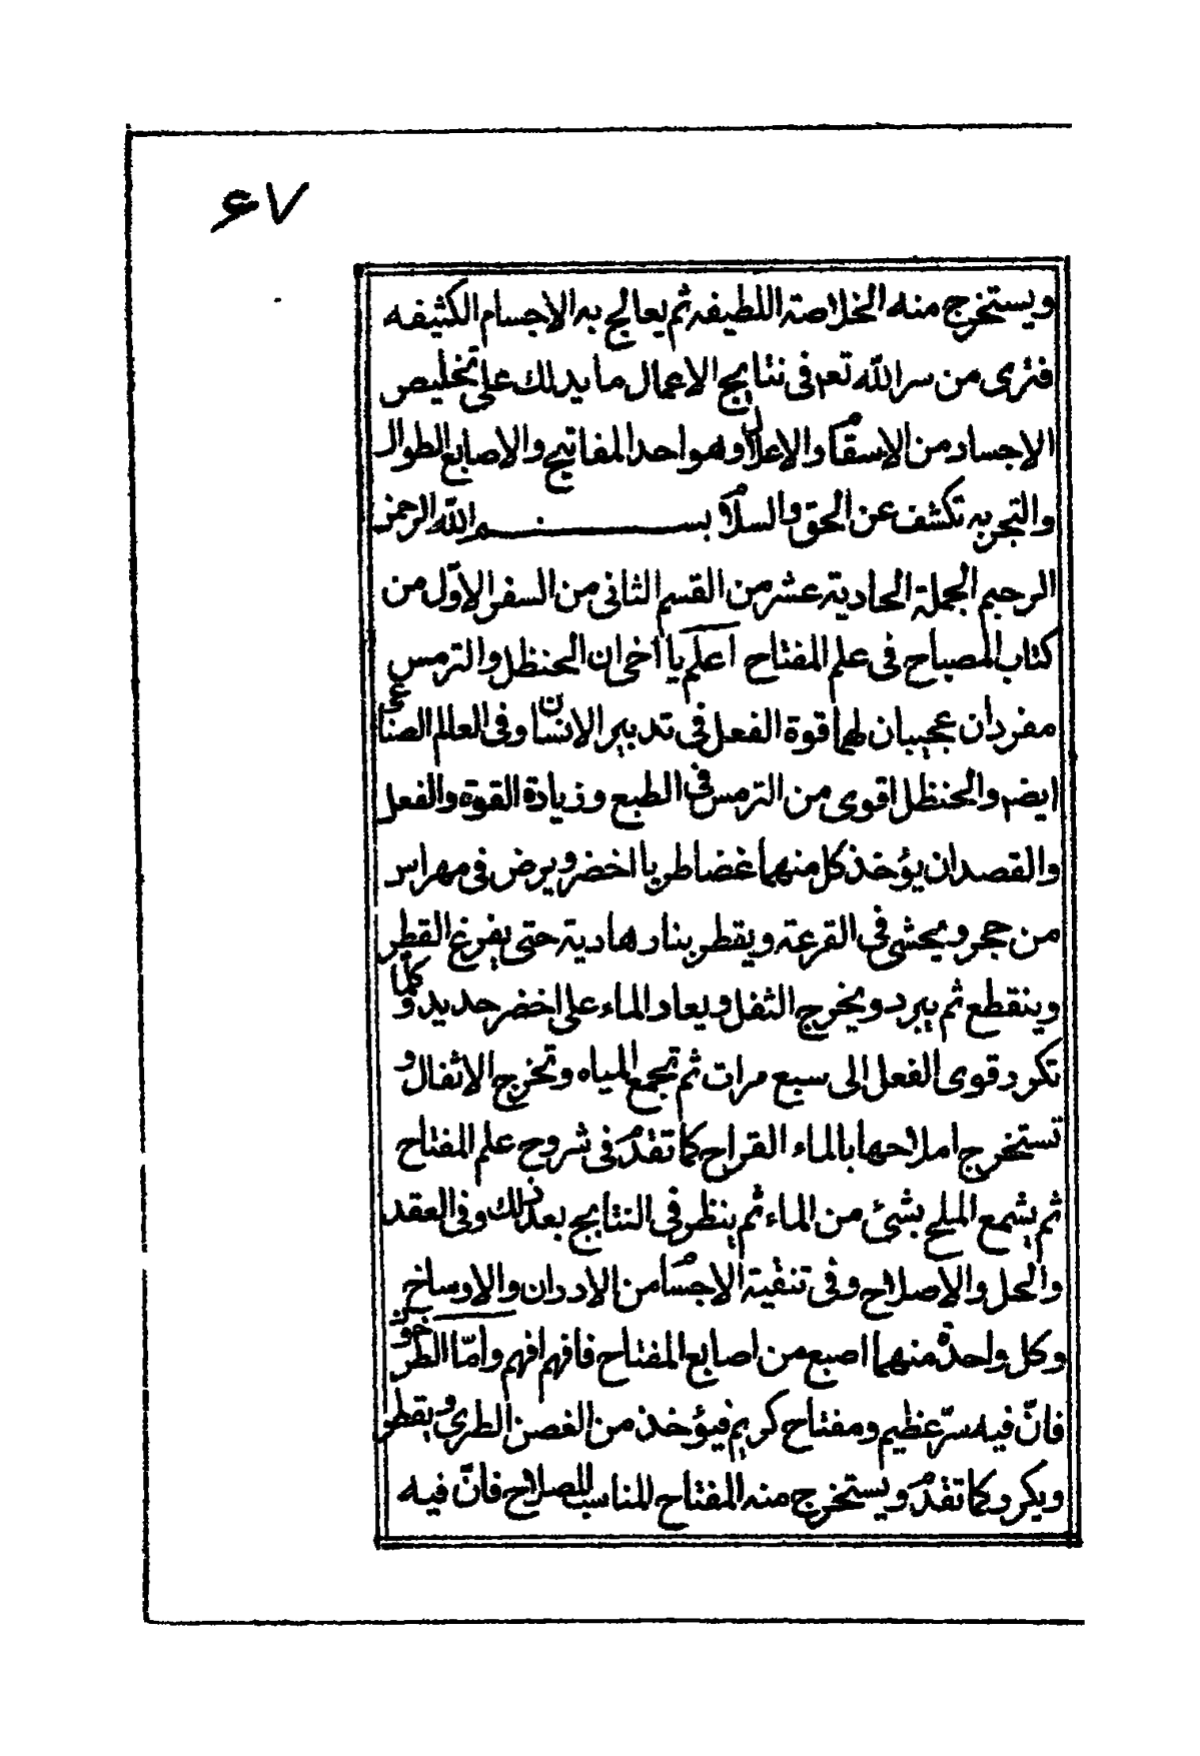 ۶۷
ويستخرج منه الخلاصة اللطيفه ثم يعالج به الاجسام الكثيفه
فترى من سر الله تعم فى نتايج الاعمال ما يدلك على تخليص
الاجساد من الاسقام والاعلال وهو احد المفاتيح والاصابع الطوال
والتجربه تكشف عن الحق والسلام بسم الله الرحمن
الرحيم الجملة الحادية عشر من القسم الثانى من السفر الاوّل من
كتاب المصباح فى علم المفتاح اعلم يا اخى ان الحنظل والترمس
مفردان عجيبان لهما قوة الفعل فى تدبير الانسان وفى العالم الصناعى
ايضم والحنظل اقوى من الترمس فى الطبع وزيادة القوة والفعل
والقصد ان يؤخذ كل منهما غضا طريا اخضر ويرض فى مهراس
من حجر ويحشى فى القرعة ويقطر بنار هادية حتى يفرغ القطر
وينقطع ثم يبرد ويخرج الثفل ويعاد الماء على اخضر جديد وكلما
تكرر قوى الفعل الى سبع مرات ثم تجمع المياه وتخرج الاثفال و
تستخرج املاحها بالماء القراح كما تقدم فى شروح علم المفتاح
ثم يشمع الملح بشئ من الماء ثم ينظر فى النتايج بعد ذلك وفى العقد
والحل والاصلاح وفى تنقية الاجسام من الادران والاوساخ
وكل واحدة منهما اصبع من اصابع المفتاح فافهم افهم وامّا الطرخون
فانّ فيه سرّ عظيم ومفتاح كريم فيؤخذ من الغصن الطرى ويقطر
ويكرر كما تقدم ويستخرج منه المفتاح المناسب للصلاح فانّ فيه